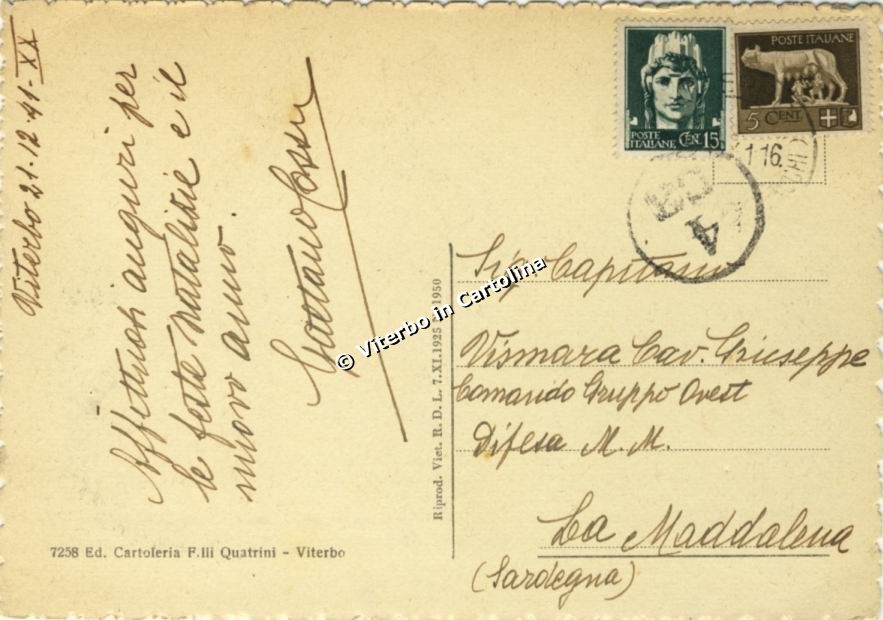 Viterbo 21-12-41-XX
Affettuosi auguri per
le feste natalizie e il
nuovo anno.
Gaetano
© Viterbo in Cartolina
7258 Ed. Cartoleria F.lli Quatrini - Viterbo
Riprod. Viet. R. D. L. 7.XI.1925 1950
POSTE
ITALIANE CEN. 15
POSTE ITALIANE
5 CENT.
1 16.
A
Sig. Capitano
Vismara Cav. Giuseppe
Comando Gruppo Ovest
Difesa M. M.
La Maddalena
(Sardegna)